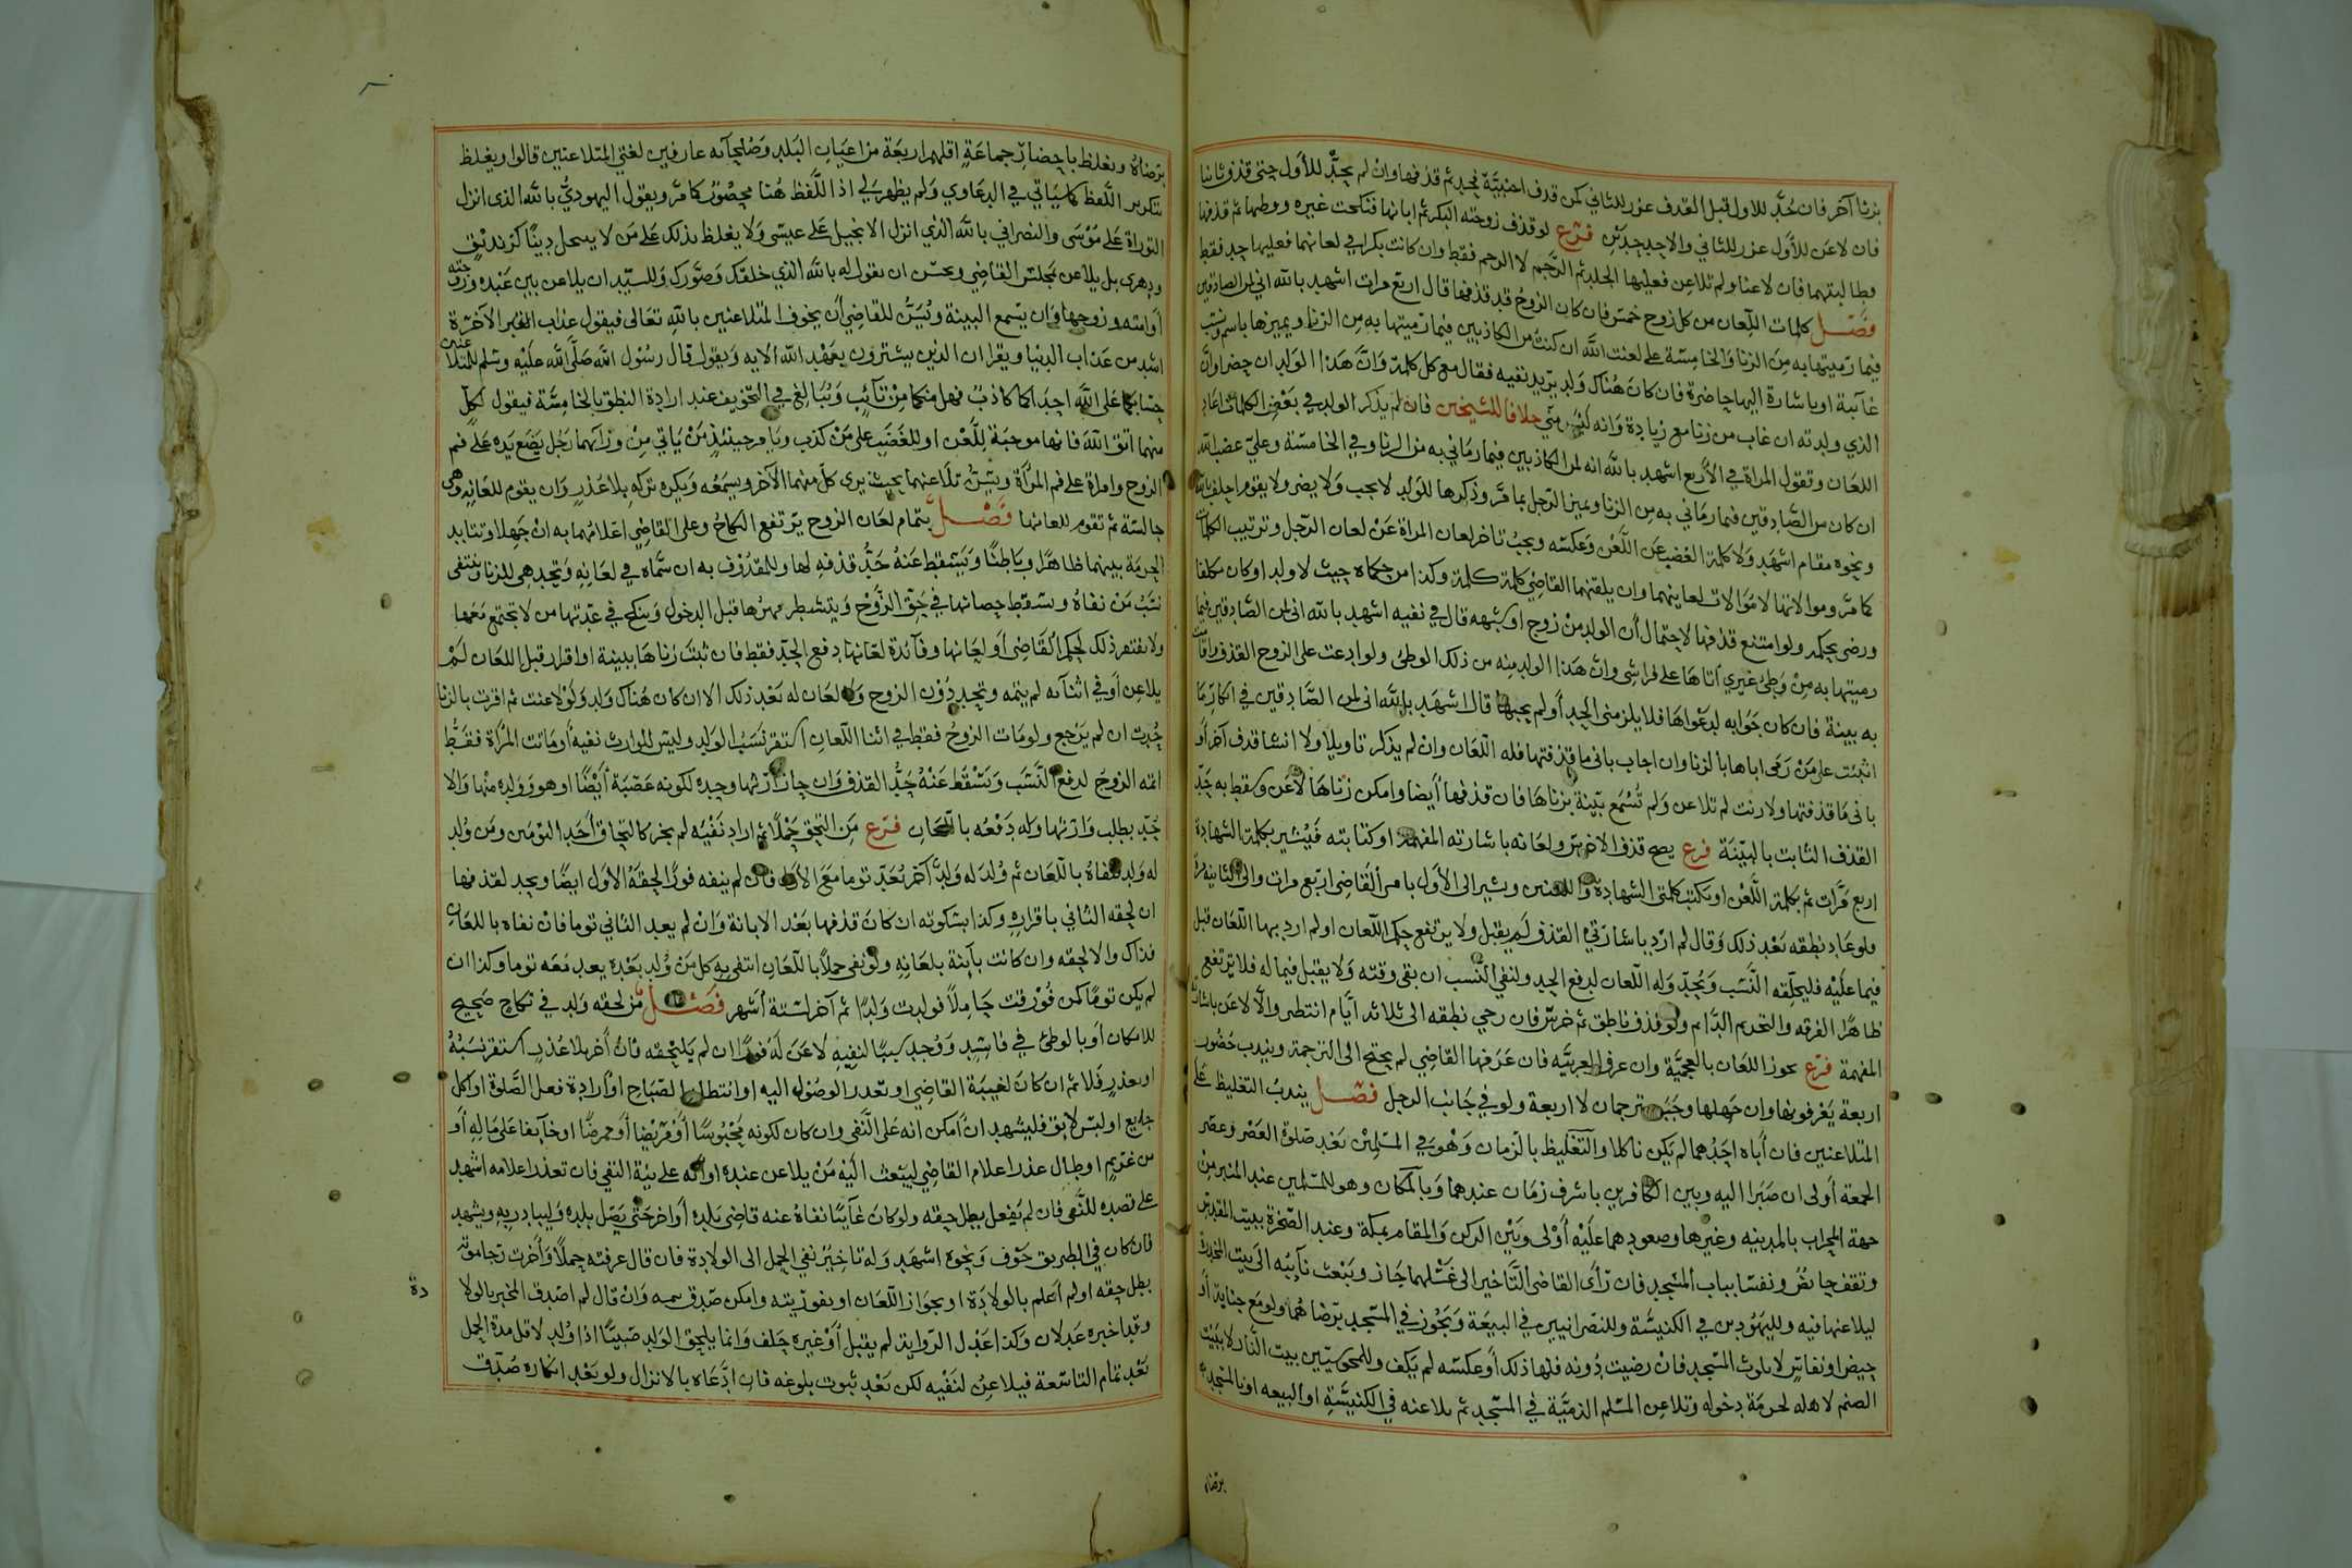 بزنا آخر فان حُدَّ للاول قبل القذف عزر للثاني كمن قذف اجنبيَّة فحد ثم قذفها وان لم يحدَّ للأول حتى قذف ثانيا
فان لاعَن للأول عزر للثاني والاحد حدَّين فرع لو قذف زوجته البكر ثم ابانها فنكحت غيره ووطيها ثم قذفها
وطالبتهما فان لاعنا ولم تلاعن فعليها الجلد ثم الرَّجم لا الرجم فقط وان كانت بكرا في لعانهما فعليها حد فقط
فصل كلمات اللعان من كل زوج خمس فان كان الزوج قد قذفها قال اربع مرات اشهد بالله اني لمن الصادقين
فيما رميتها به من الزنا والخامسة على لعنت الله ان كنت من الكاذبين فيما رميتها به من الزنا ويميزها باسم ونسب
غائبة او باشارة اليها حاضرة فان كان هناك ولد يريد نفيه فقال مع كل كلمة وانَّ هذا الولد ان حضر اوانَّ
الذي ولدته ان غاب من زنا مع زيادة وانه ليس مني خلافا للشيخين فان لم يذكر الولد في بعض الكلمات اعاد
اللعان وتقول المراة في الأربع اشهد بالله انه لمن الكاذبين فيما رماني به من الزنا وفي الخامسة وعليّ غضب الله
ان كان من الصادقين فيما رماني به من الزنا ويميز الرجل بما مرَّ وذكرها للولد لا يجب ولا يضر ولا يقوم احلف بالله
ونحوه مقام اشهد ولا كلمة الغضب عن اللعن وعكسه ويجب تاخر لعان المراة عن لعان الرجل وترتيب الكلمات
كما مرَّ وموالاتها لا موالات لعانيهما وان يلقنهما القاضي كلمة كلمة وكذا من حكماه حيث لا ولد او كان مكلفا
ورضى بحكمه ولو امتنع قذفها لاحتمال أن الولد من زوج او شبهه قال في نفيه اشهد بالله اني لمن الصادقين فيما
رميتها به من وطئ غيري اتاها على فراشي وان هذا الولد منه من ذلك الوطئ ولو ادعت على الزوج القذف واقامت
به بينة فان كان جوابه لدعواها فلا يلزمني الحد أو لم يجبها قال اشهد بالله اني لمن الصادقين في انكار ما
اثبتت على من رمى اياها بالزنا وان اجاب باني ما قذفتها فله اللعان وان لم يذكر تاويلا ولا انشا قذف آخر أو
باني ما قذفتها ولا زنت لم تلاعن ولم تسمع بينة بزناها فان قذفها أيضا وامكن زناها لاعن وسقط به حَدّ
القذف الثابت بالبيّنة فرع يصح قذف الاخرس ولعانه باشارته المفهمة او كتابته فيشير بكلمة الشهادة
اربع مرَّات ثم بكلمة اللَّعن او يكتب كلمتي الشهادة واللعن ويشير الى الأول بامر القاضي اربع مرات والى الثانية مرَّة
ولو عاد نطقه بعد ذلك وقال لم ارد باشارتي القذف لم يقبل ولا يرتفع حكم اللعان او لم ارد بها اللعان قبل
فيما عليه فليحلقه النَّسب ويُحدّ وله اللعان لدفع الحد ولنفي النسب ان بقي وقته ولا يقبل فيما له فلا ترتفع
ظاهرًا الفرقه والتحريم الدَّائم ولو قذف ناطق ثم خرس فان رجي نطقه الى ثلاثة أيَّام انتظر والّا لاعَن باشارته
المفهمة فرع يجوز اللعان بالعجميَّة وان عرف العربيَّة فان عَرَفها القاضي لم يحتج الى الترجمة ويندب حضور
اربعة يعرفونها وان جهلها وجب مترجمان لا اربعة ولو في جانب الرجل فصل يندب التغليظ على
المتلاعنين فان أباه احدهما لم يكن ناكلا والتغليظ بالزمان وهو في المسلمين بعد صلوة العصر وعصر
الجمعة أولى ان صبرا اليه وبين الكافرين باشرف زمان عندهما وبالمكان وهو للمسلمين عند المنبر من
جهة المحراب بالمدينه وغيرها وصعودهما عليه أولى وبين الركن والمقام بمكة وعند الصخرة ببيت المقدس
وتقف حائض ونفسا بباب المسجد فان رأى القاضي التَّاخير الى غسلهما جاز ويبعث نائبه الى بيت المخدرة
ليلاعنها فيه ولليهوديين في الكنيسة وللنصرانيين في البيعة ويجوز في المسجد برضاهما ولو مع جنابة أو
حيض او نفاس لا يلوث المسجد فان رضيت دونه فلها ذلك أو عكسه لم يكف وللمجوسيّين بيت النار لا ببيت
الصنم لاهله لحرمة دخوله وتلاعن المسلم الذميَّة في المسجد ثم يلاعنه في الكنيسة او البيعه او بالمسجد
برضاه
برضاه ويغلظ باحضار جماعة اقلهم اربعة من اعيان البلد وصلحائه عارفين لغتي المتلاعنين قالوا ويغلظ
بتكرير اللفظ كما سياتي في الدعاوي ولم يظهر لي اذ اللَّفظ هُنا محصور كما مرَّ ويقول اليهوديُّ بالله الذي انزل
التوراة على موسى والنصراني بالله الذي انزل الانجيل على عيسى ولا يغلظ بذلك على من لا ينتحل دينًا كزنديق
ودهري بل يلاعن مجلس القاضي ويحسن ان يقول له بالله الذي خلقك وصوَّرك وللسيّد ان يلاعن بين عبده وزوجته
أو امته وزوجها وان يسمع البينة ويُسَنُّ للقاضي أن يخوف المتلاعنين بالله تعالى فيقول عذاب القبر الآخرة
اشد من عذاب الدنيا ويقرا ان الذين يشترون بعهد الله الايه ويقول قال رسول الله صلَّى الله عليه وسلم للمتلاعنين
حسابكما على الله احدكما كاذب فهل منكما من تائب ويُبالغ في التخويف عند ارادة النطق بالخامسة فيقول لكل
منهما اتق الله فانها موجبة للَّعن او للغضب على من كذب ويامر حينئذ من ياتي من ورآهما رجل يضع يده على فم
الزوج وامراة على فم المرأة ويتبيّن تلاعنهما بحيث يرى كل منهما الآخر ويسمعه ويكره تركه بلا عذر وان يقوم للعانه وهي
جالسة ثم تقوم للعانها فصل بتمام لعان الزوح يرتفع النكاح وعلى القاضي اعلامهما به ان جهلا وتتابد
الحرمة بينهما ظاهرًا وباطنًا ويسقط عنه حَدُّ قذفه لها وللمقذوف به ان سمَّاه في لعانه وتحد هي للزنا وينتفي
نسب من نفاه ويسقط حصانها في حق الزَّوج ويتشطر مهرُها قبل الدخول وينكح في عدتها من لا تجتمع معها
ولا يفتقر ذلك لحكم القاضي أو لعانها وفائدة لعانها دفع الحد فقط فان ثبت زناها ببينة او اقرار قبل اللعان لَمْ
يلاعن أو في اثنائه لم يتمه وتحد دون الزوج ولا لعان له بعد ذلك الا ان كان هناك ولد ولو لاعنت ثم اقرت بالزنا
حُدت ان لم يرجع ولو مات الزوج فقط في اثنا اللعان استقر نسب الولد وليس للوارث نفيه أو ماتت المرأة فقط
اتمه الزوج لدفع النَّسب ويسقط عنه حدُّ القذف وان حاز ارثها وحده لكونه عصبة أيضًا او هو وولده منها والا
حُدّ بطلب وارثها وله دفعه باللعان فرع من التحق حملًا ثم اراد نفيه لم يجز كالتحاق أحد التومين ومن ولد
له ولد نفاه باللعان ثم وُلد له ولدٌ آخر يُعدّ توما مع الأول فان لم ينفه فورًا لحقه الأول ايضًا ويحد لقذفها
ان لحقه الثاني باقراره وكذا بسكوته ان كان قذفها بعد الابانة وان لم يعد الثاني توما فان نفاه باللعان
فذاك والا لحقه وان كانت بائنة بلعانه ولو نفى حملًا باللعان انتفى به كل من وُلد بعده يعد معه توما وكذا ان
لم يكن تومًا كمن فورقت حاملًا فولدت ولدًا ثم آخر لستة أشهر فصل من لحقه ولد في نكاح صحيح
للامكان أو بالوطئ في فاسد ووجد سببًا لنفيه لاعَن له فورًا ان لم يلحقه فان أخر بلا عذر استقر نسبه
او بعذر فلا ثم ان كان لغيبة القاضي او تعذر الوصول اليه او انتظار الصباح او ارادة فعل الصلوة او اكل
جايع او لبس لايق فليشهد ان أمكن انه على النَّفي وان كان لكونه محبوسًا أو مريضا أو ممرضًا او خائفا على ماله أو
من غريم او طال عذر اعلام القاضي ليبعث اليه من يلاعن عنده او انه على نية النفي فان تعذر اعلامه اشهد
على قصده للنَّفي فان لم يفعل بطل حقه ولو كان غائبًا نفاه عنه قاضي بلده أو اخر حتى يصل بلده وليبادر به ويشهد
فان كان في الطريق خوف ونحوه اشهد وله تاخير نفي الحمل الى الولادة فان قال عرفته حملًا وأخرت رجا موته
بطل حقه او لم أعلم بالولادة او بجواز اللعان او بفوريته وامكن صدق بيمينه وان قال لم اصدق المخبر بالولا
دة
وقد اخبره عدلان وكذا عدل الرواية لم يقبل أو غيره حلف وانما يلحق الولد صبيًّا اذا وُلد لاقل مدة الحمل
بعد تمام التاسعة فيلاعن لنفيه لكن بعد ثبوت بلوغه فان ادَّعاه بالانزال ولو بعد انكاره صُدّق